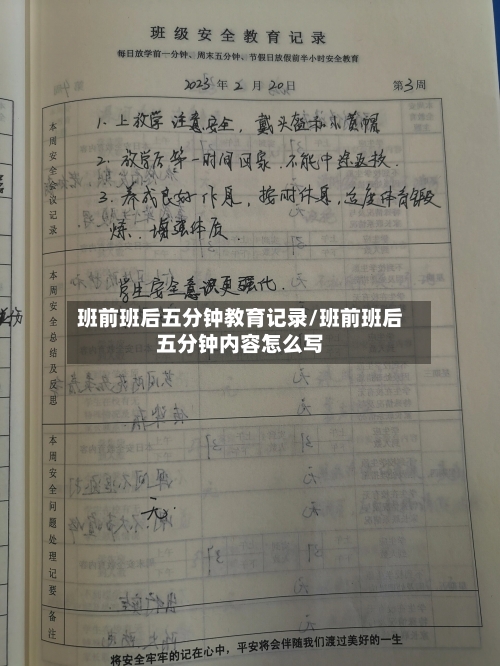 班级安全教育记录
每日放学前一分钟、周末五分钟、节假日放假前半小时安全教育
2023年2月20日 第3周
本周安全会议记录
1. 上放学注意安全，戴头盔和小黄帽
2. 放学后第一时间回家.不能中途逗
3. 养成良好作息，按时休息，适度体育锻
炼、增强体质.
本周安全总结及反思
学生安全意识更强化.
班前班后五分钟教育记录/班前班后
五分钟内容怎么写
本周安全问题处理记要
无
备注
将安全牢牢的记在心中，平安将会伴随我们渡过美好的一生